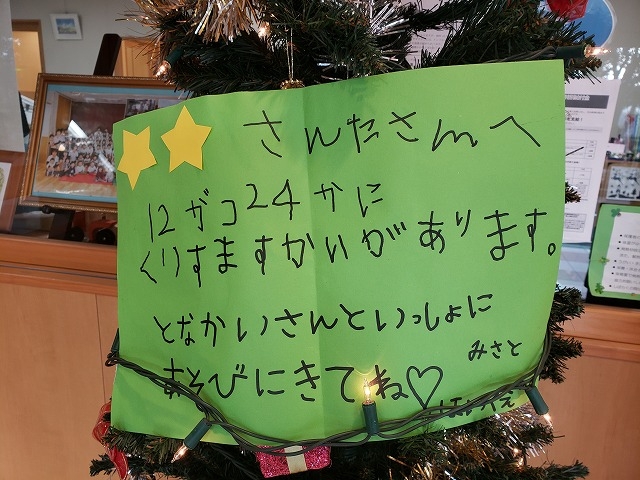 さんたさんへ
12がつ24かに
くりすますかいがあります。
となかいさんといっしょに
あそびにきてね♡
みさと